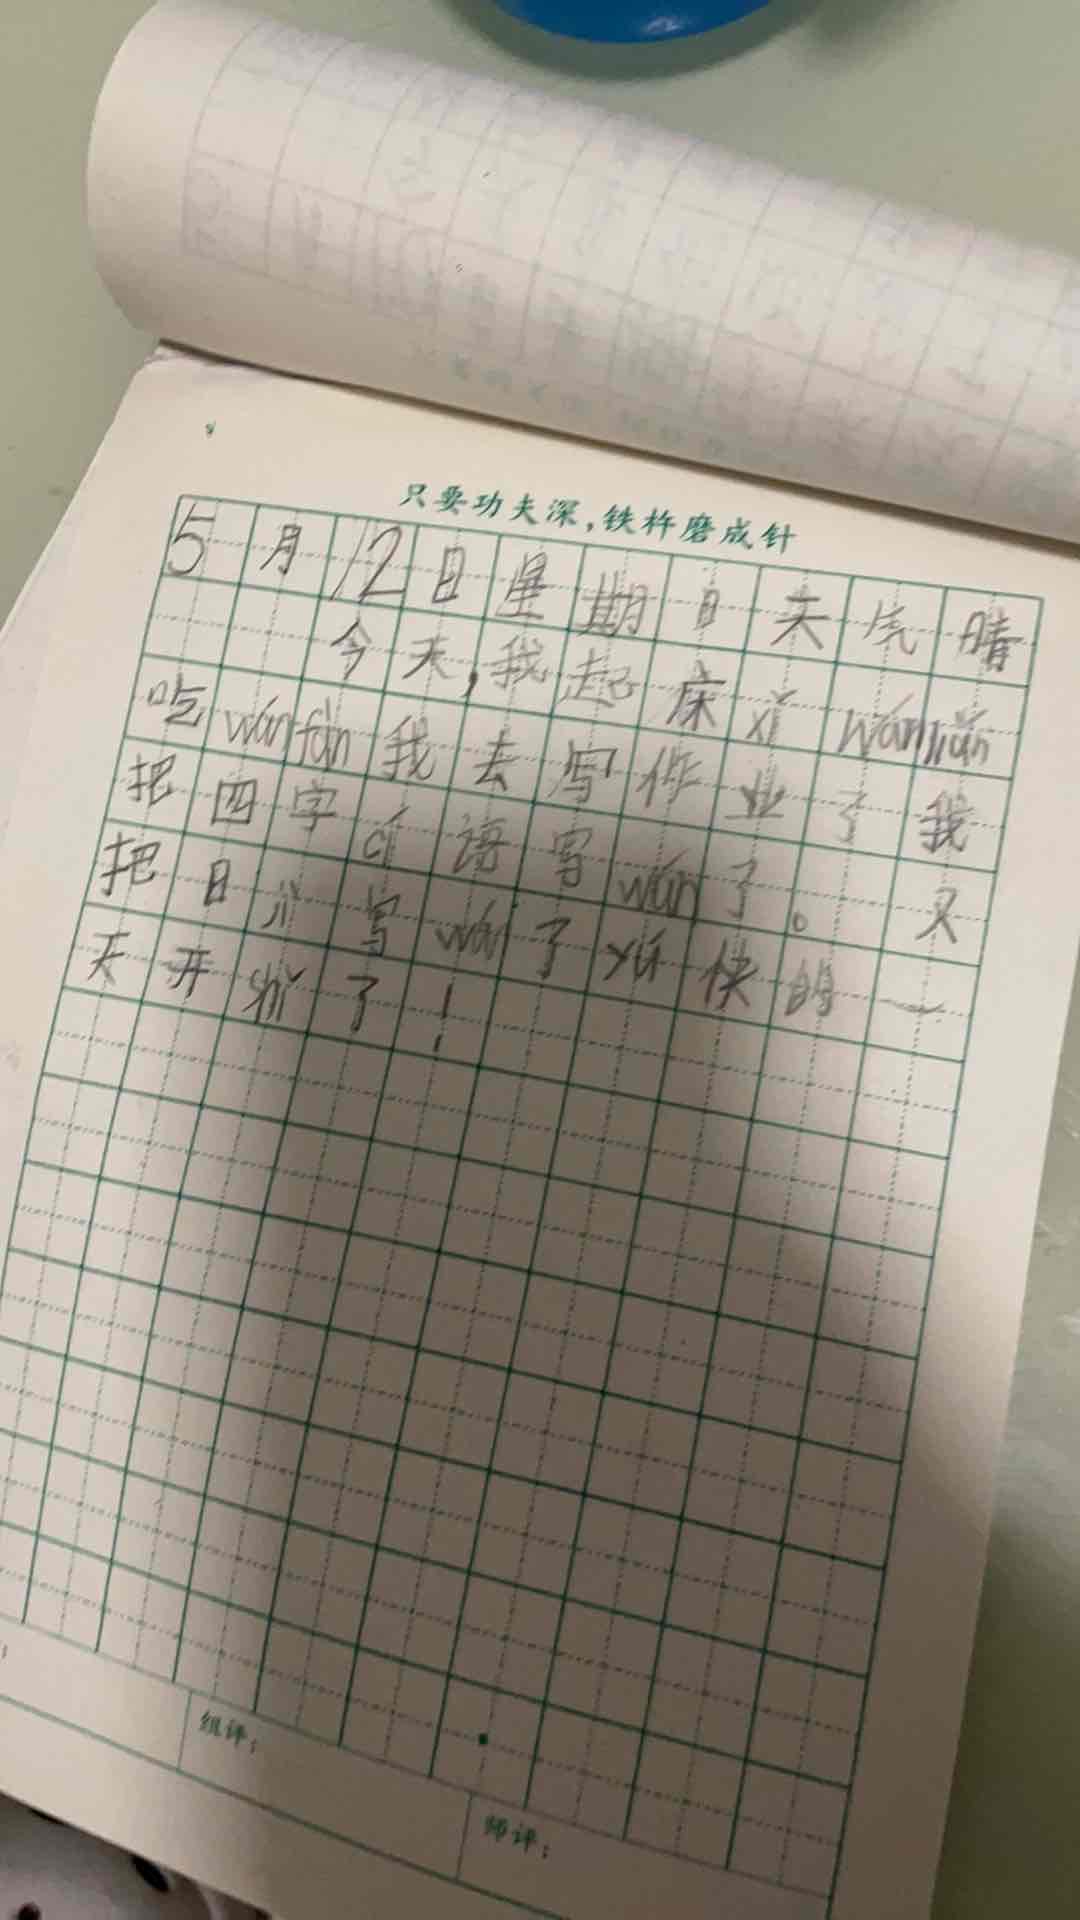 只要功夫深,铁杵磨成针
5月12日星期日天气晴
今天,我起床xǐ wánliǎn
吃wánfàn我去写作业了我
把四字cí语写wán了。又
把日jì写wán了yú快的一
天开shǐ了!
组评:
师评: